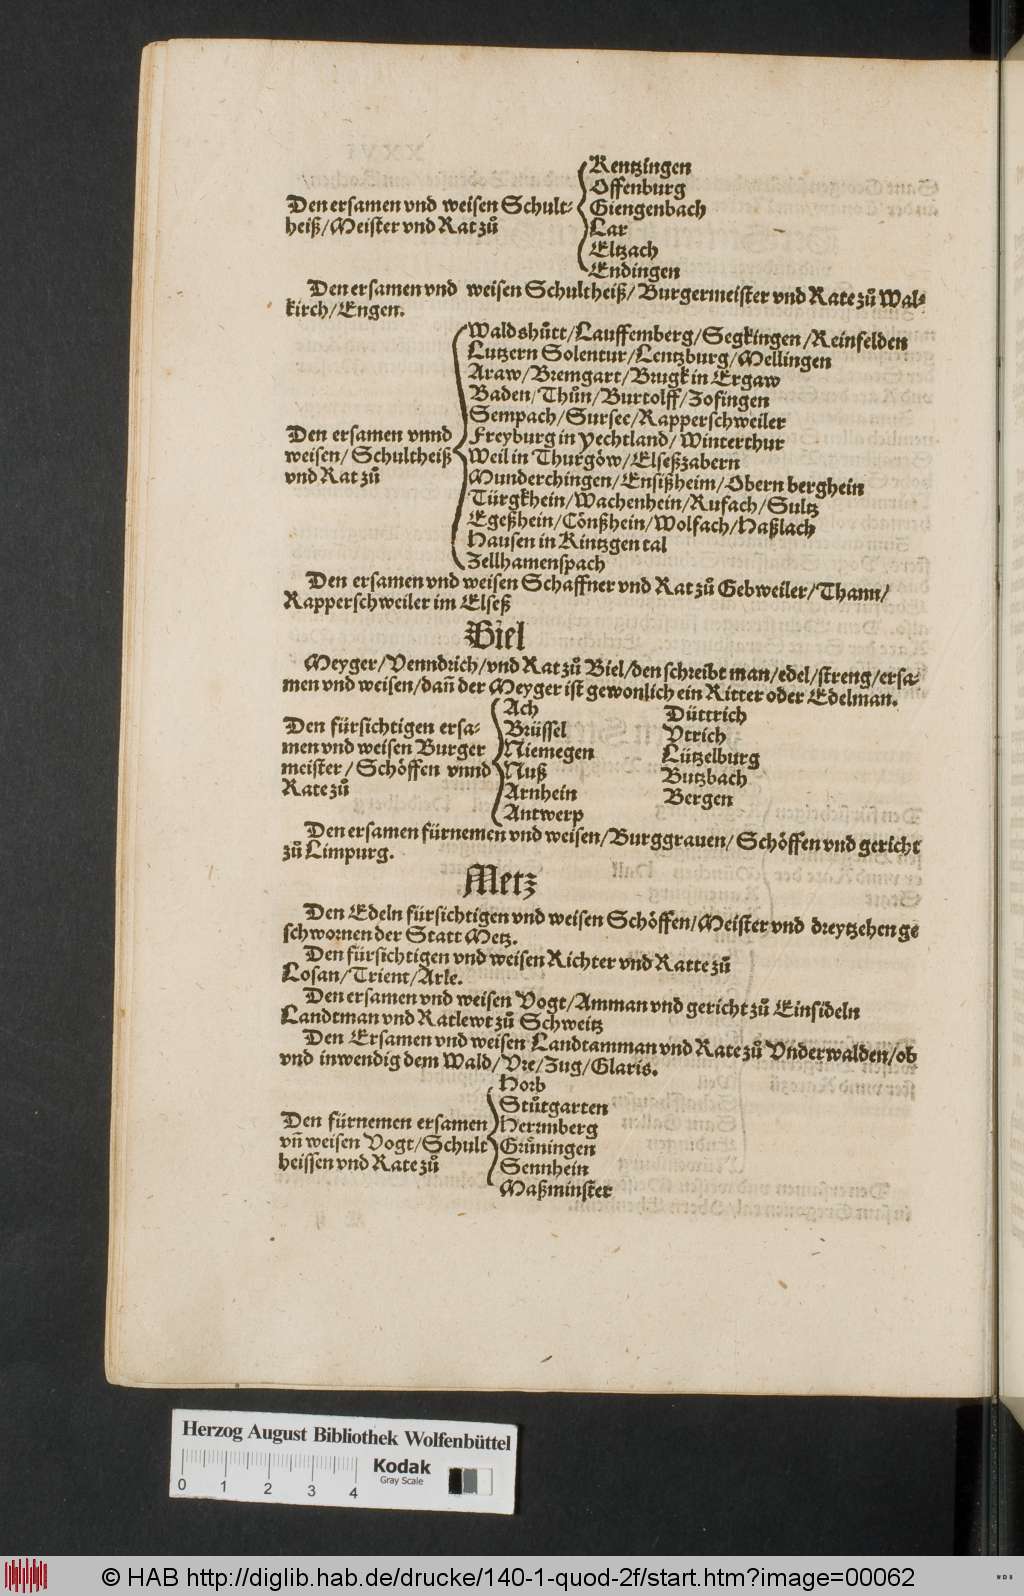 Kentzingen
Offenburg
Den ersamen vnd weisen Schult⸗ Giengenbach
heiß/Meister vnd Rat zů Lar
Eltzach
Endingen
Den ersamen vnd weisen Schultheiß/Burgermeister vnd Rate zů Wal⸗
kirch/Engen.
Waldshůtt/Lauffemberg/Segkingen/Reinfelden
Lutzern Solentur/Lentzburg/Mellingen
Araw/Bremgart/Brugk in Ergaw
Baden/Thůn/Burtolff/Zofingen
Sempach/Sursee/Rapperschweiler
Den ersamen vnnd Freyburg in Yechtland/Winterthur
weisen/Schultheiß Weil in Thurgöw/Elseßzabern
vnd Rat zů Munderchingen/Ensißheim/Obern berghein
Türgkhein/Wachenhein/Rufach/Sultz
Egeßhein/Cönßhein/Wolfach/Haßlach
Hausen in Kintzgental
Zellhamenspach
Den ersamen vnd weisen Schaffner vnd Rat zů Gebweiler/Thann/
Rapperschweiler im Elseß
Biel
Meyger/Venndrich/vnd Rat zů Biel/den schreibt man/edel/streng/ersa⸗
men vnd weisen/dañ der Meyger ist gewonlich ein Ritter oder Edelman.
Ach Düttrich
Den fürsichtigen ersa⸗ Brüssel Vtrich
men vnd weisen Burger Niemegen Lützelburg
meister/Schöffen vnnd Nuß Butzbach
Rate zů Arnhein Bergen
Antwerp
Den ersamen fürnemen vnd weisen/Burggrauen/Schöffen vnd gericht
zů Limpurg.
Metz
Den Edeln fürsichtigen vnd weisen Schöffen/Meister vnd dreytzehen ge
schwornen der Statt Metz.
Den fürsichtigen vnd weisen Richter vnd Ratte zů
Losan/Trient/Arle.
Den ersamen vnd weisen Vogt/Amman vnd gericht zů Einsideln
Landtman vnd Ratlewt zů Schweitz
Den Ersamen vnd weisen Landtamman vnd Rate zů Vnderwalden/ob
vnd inwendig dem Wald/Vre/Zug/Glaris.
Horb
Stůtgarten
Den fürnemen ersamen Herrnberg
vñ weisen Vogt/Schult Grůningen
heissen vnd Rate zů Sennhein
Maßminster
Herzog August Bibliothek Wolfenbüttel
Kodak
Gray Scale
0 1 2 3 4
© HAB http://diglib.hab.de/drucke/140-1-quod-2f/start.htm?image=00062